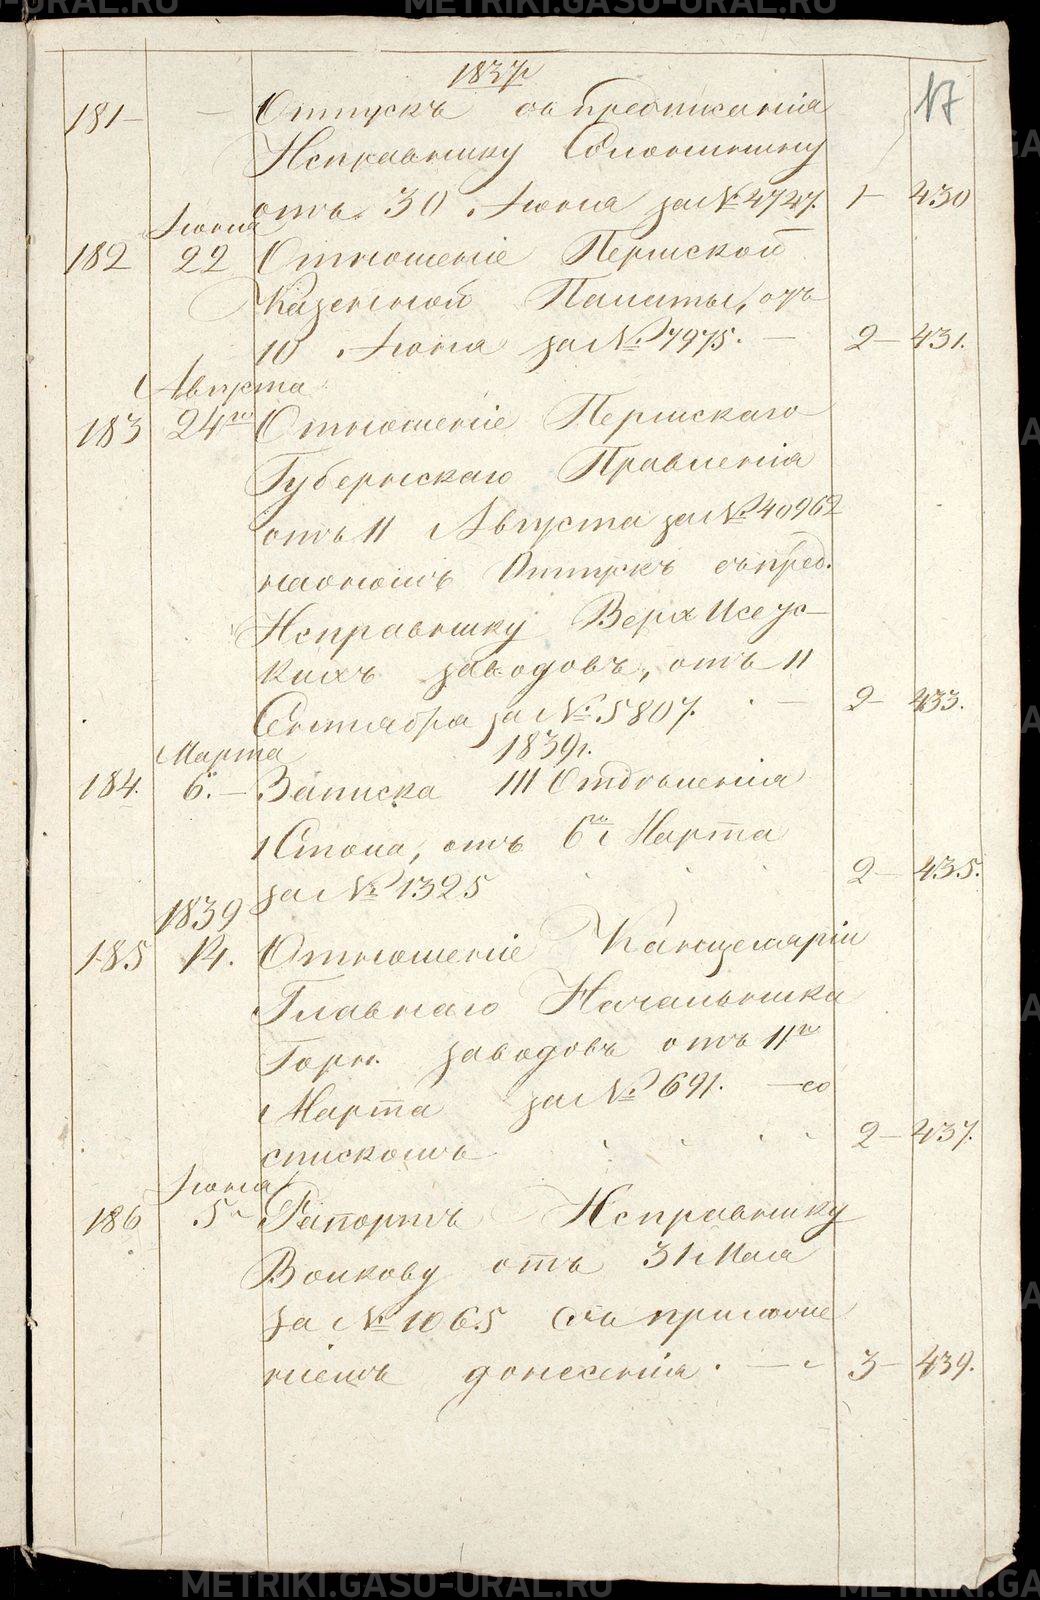 METRIKI.GASO-URAL.RU
17
1837г
181 — Отпускъ съ предписанія
Исправнику
отъ 30 Іюня за № 4747. 1 — 430
Іюня
182 22 Отношеніе Пермской
Казенной Палаты, отъ
10 Іюня за № 7975. — 2 — 431.
Августа
183 24го Отношеніе Пермскаго
Губернскаго Правленія
отъ 11 Августа за № 40962
на ономъ Отпускъ съ пред.
Исправнику Верхъ Исетс-
кихъ заводовъ, отъ 11
Сентября за № 5807. — 2 — 433.
1839г.
Марта
184. 6. — Записка III Отдѣленія
1 Стола, отъ 6го Марта
за № 1325 2 — 435.
1839
185 14. Отношеніе Канцеляріи
Главнаго Начальника
Горн. заводовъ отъ 11го
Марта за № 691. — со
спискомъ 2 — 437.
Іюня
186 5 Рапортъ Исправнику
Волкову отъ 31 Мая
за № 1065 съ приложе
ніемъ донесенія. — 3 — 439.
METRIKI.GASO-URAL.RU